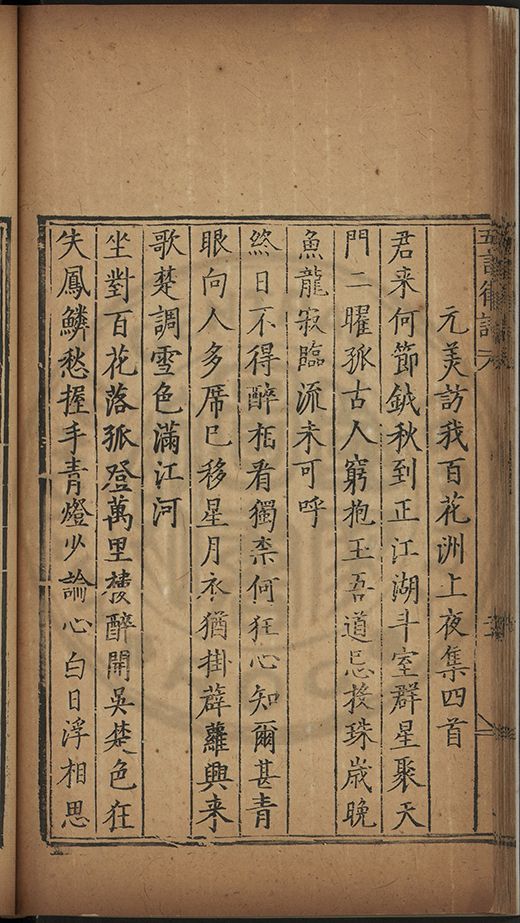 元美訪我百花洲上夜集四首
君来何節鉞秋到正江湖斗室群星聚天
門二曜孤古人窮抱玉吾道忌投珠歲晚
魚龍寂臨流未可呼
終日不得醉相看獨柰何狂心知爾甚青
眼向人多席已移星月衣猶掛薜蘿興来
歌楚調雪色滿江河
坐對百花落孤登萬里樓醉開吳楚色狂
失鳳鱗愁握手青燈少論心白日浮相思